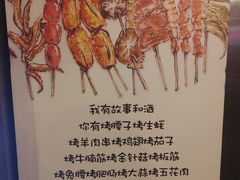 我有故事和酒
你有烤腰子烤生蚝
烤羊肉串烤鸡翅烤茄子
烤牛腩筋烤金针菇烤板筋
烤兔腰烤肥肠烤大蒜烤五花肉